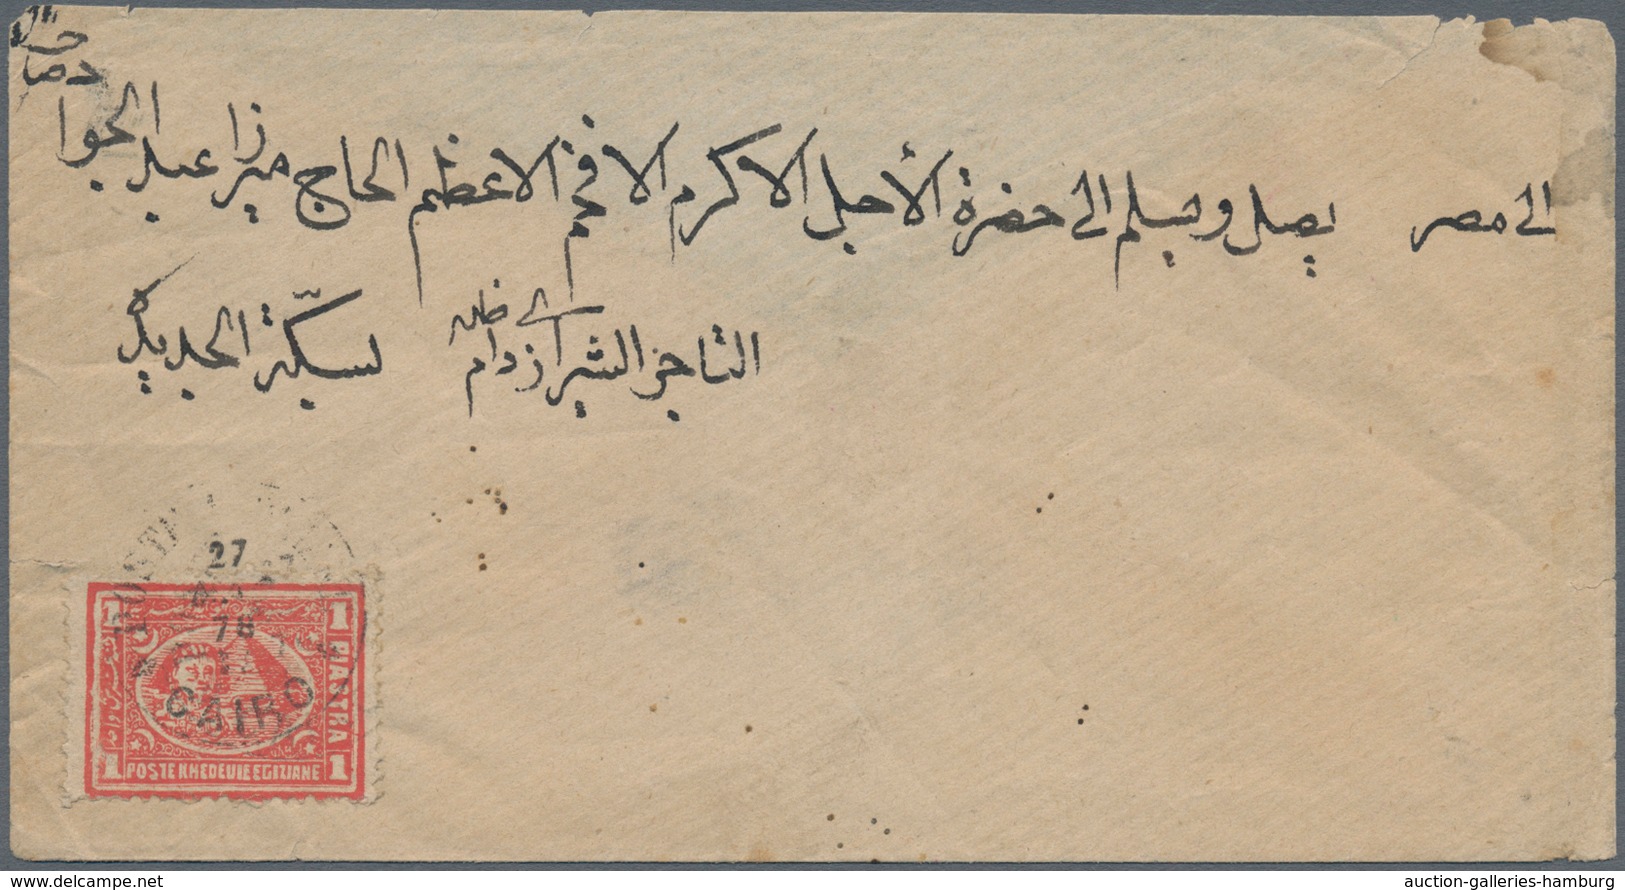 الى مصر يصل ويسلم الى حضرة الأجل الاكرم الافخم الاعظم الحاج ميرزا عبد الجوا
التاجر الشيرازي دام ظله لسكّة الجديدة
27
78
CAIRO
1 1
PIASTRA
1 POSTE KHEDEUIE EGIZIANE 1
delcampe.net
auction-galleries-hamburg